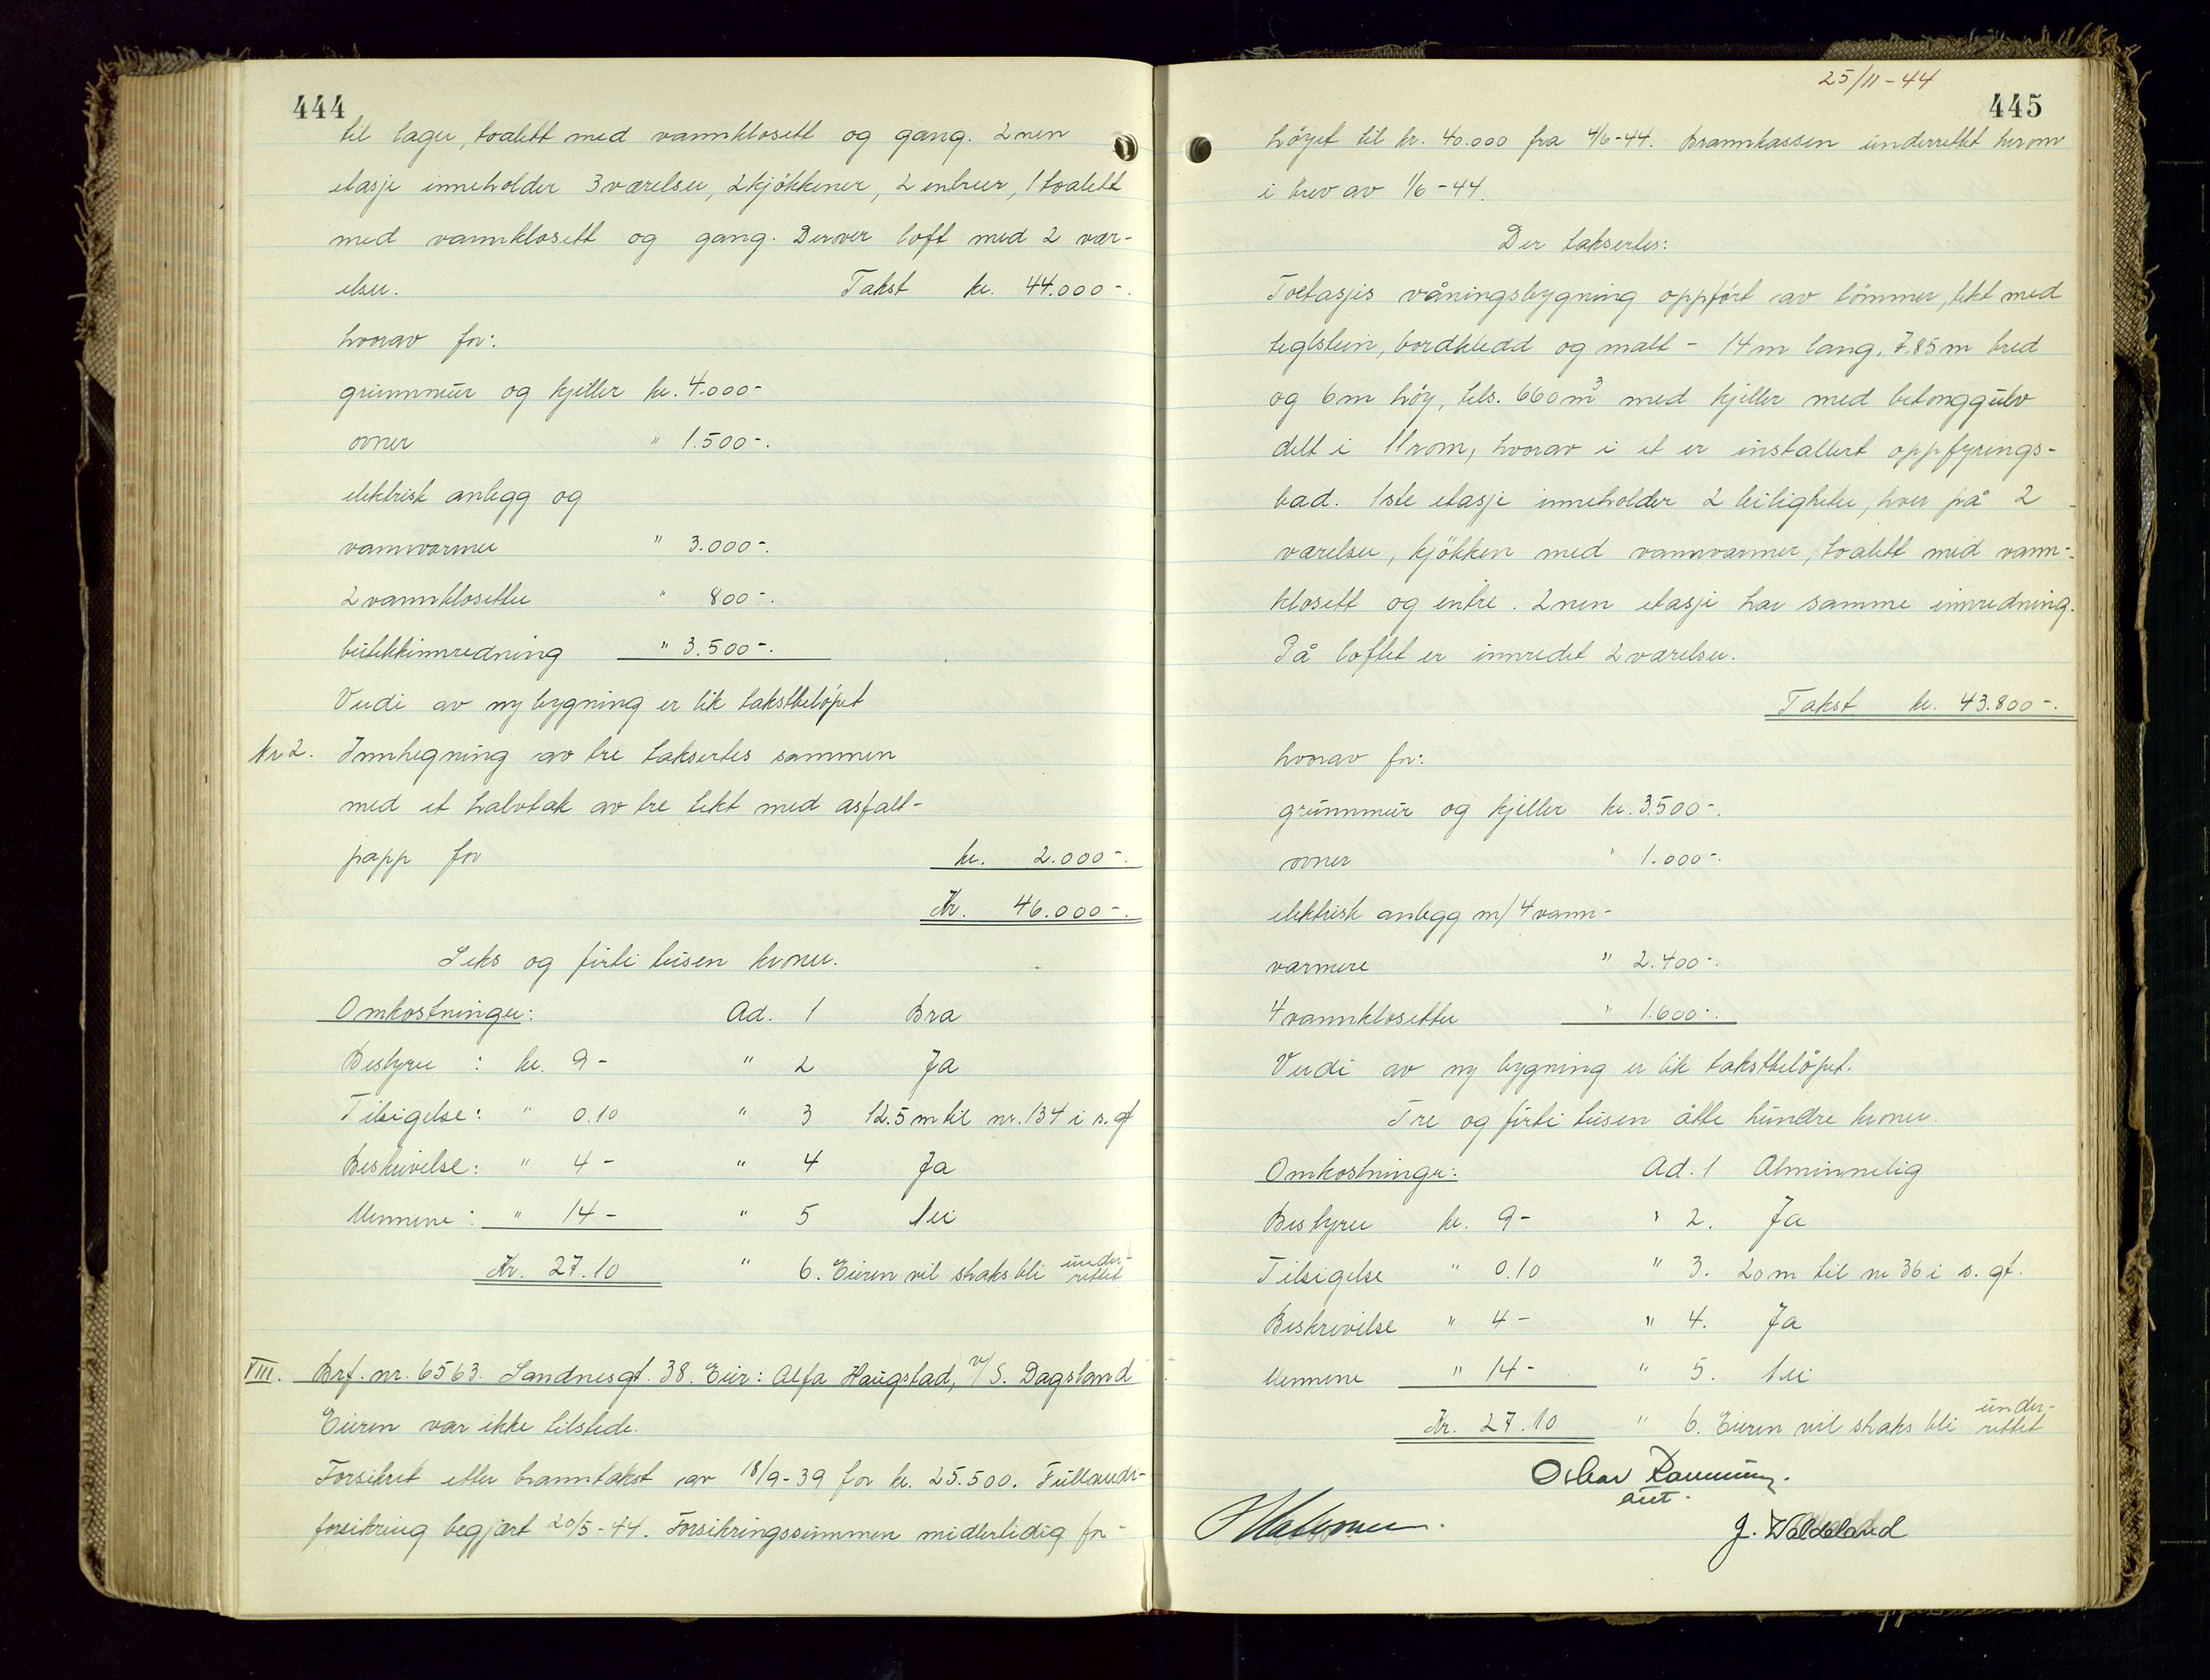 444
til lager, toalett med vannklosett og gang. 2nen
etasje inneholder 3 værelser, 2 kjøkkener, 2 entreer, 1 toalett
med vannklosett og gang. Derover loft med 2 vær-
elser. Takst kr. 44.000-.
hvorav for:
grunnmur og kjeller kr. 4.000-
ovner " 1.500-.
elektrisk anlegg og
vannvarmer " 3.000-.
2 vannklosetter " 800-.
butikkinnredning " 3.500-.
Verdi av ny bygning er lik takstbeløpet
Nr 2. Innhegning av tre takseres sammen
med et halvtak av tre tekt med asfalt-
papp for kr. 2.000-.
Kr. 46.000-.
Seks og førti tusen kroner.
Omkostninger: Ad. 1 Bra
Bestyrer : kr. 9- " 2 Ja
Tilsigelse: " 0.10 " 3 12.5 m til nr. 134 i s. gt
Beskrivelse: " 4- " 4 Ja
Mennene: " 14- " 5 Nei
Kr. 27.10 " 6. Eieren vil straks bli under-
rettet
VIII. Brf. nr. 6563. Sandnesgt. 38. Eier: Alfa Haugstad, v/ S. Dagsland
Eieren var ikke tilstede.
Forsikret etter branntakst av 18/9-39 for kr. 25.500. Fullverdi-
forsikring begjært 20/5-44. Forsikringssummen midlertidig for-
25/11-44
445
høyet til kr. 40.000 fra 4/6-44. Brannkassen underrettet herom
i brev av 1/6-44.
Der takseres:
Toetasjes våningsbygning oppført av tømmer, tekt med
teglstein, bordkledd og malt - 14 m lang, 7.85 m bred
og 6 m høy, tils. 660 m³ med kjeller med betonggulv
delt i 11 rom, hvorav i et er installert oppfyrings-
bad. 1ste etasje inneholder 2 leiligheter, hver på 2
værelser, kjøkken med vannvarmer, toalett med vann-
klosett og entre. 2nen etasje har samme innredning.
På loftet er innredet 2 værelser.
Takst kr. 43.800-.
hvorav for:
grunnmur og kjeller kr. 3.500-.
ovner " 1.000-.
elektrisk anlegg m/ 4 vann-
varmere " 2.400-.
4 vannklosetter " 1.600-.
Verdi av ny bygning er lik takstbeløpet.
Tre og førti tusen åtte hundre kroner.
Omkostninger: Ad. 1 Alminnelig
Bestyrer kr. 9- " 2. Ja
Tilsigelse " 0.10 " 3. 20 m til nr 36 i s. gt.
Beskrivelse " 4- " 4. Ja
Mennene " 14- " 5. Nei
Kr. 27.10 " 6. Eieren vil straks bli under-
rettet
Oskar
J. Waldeland